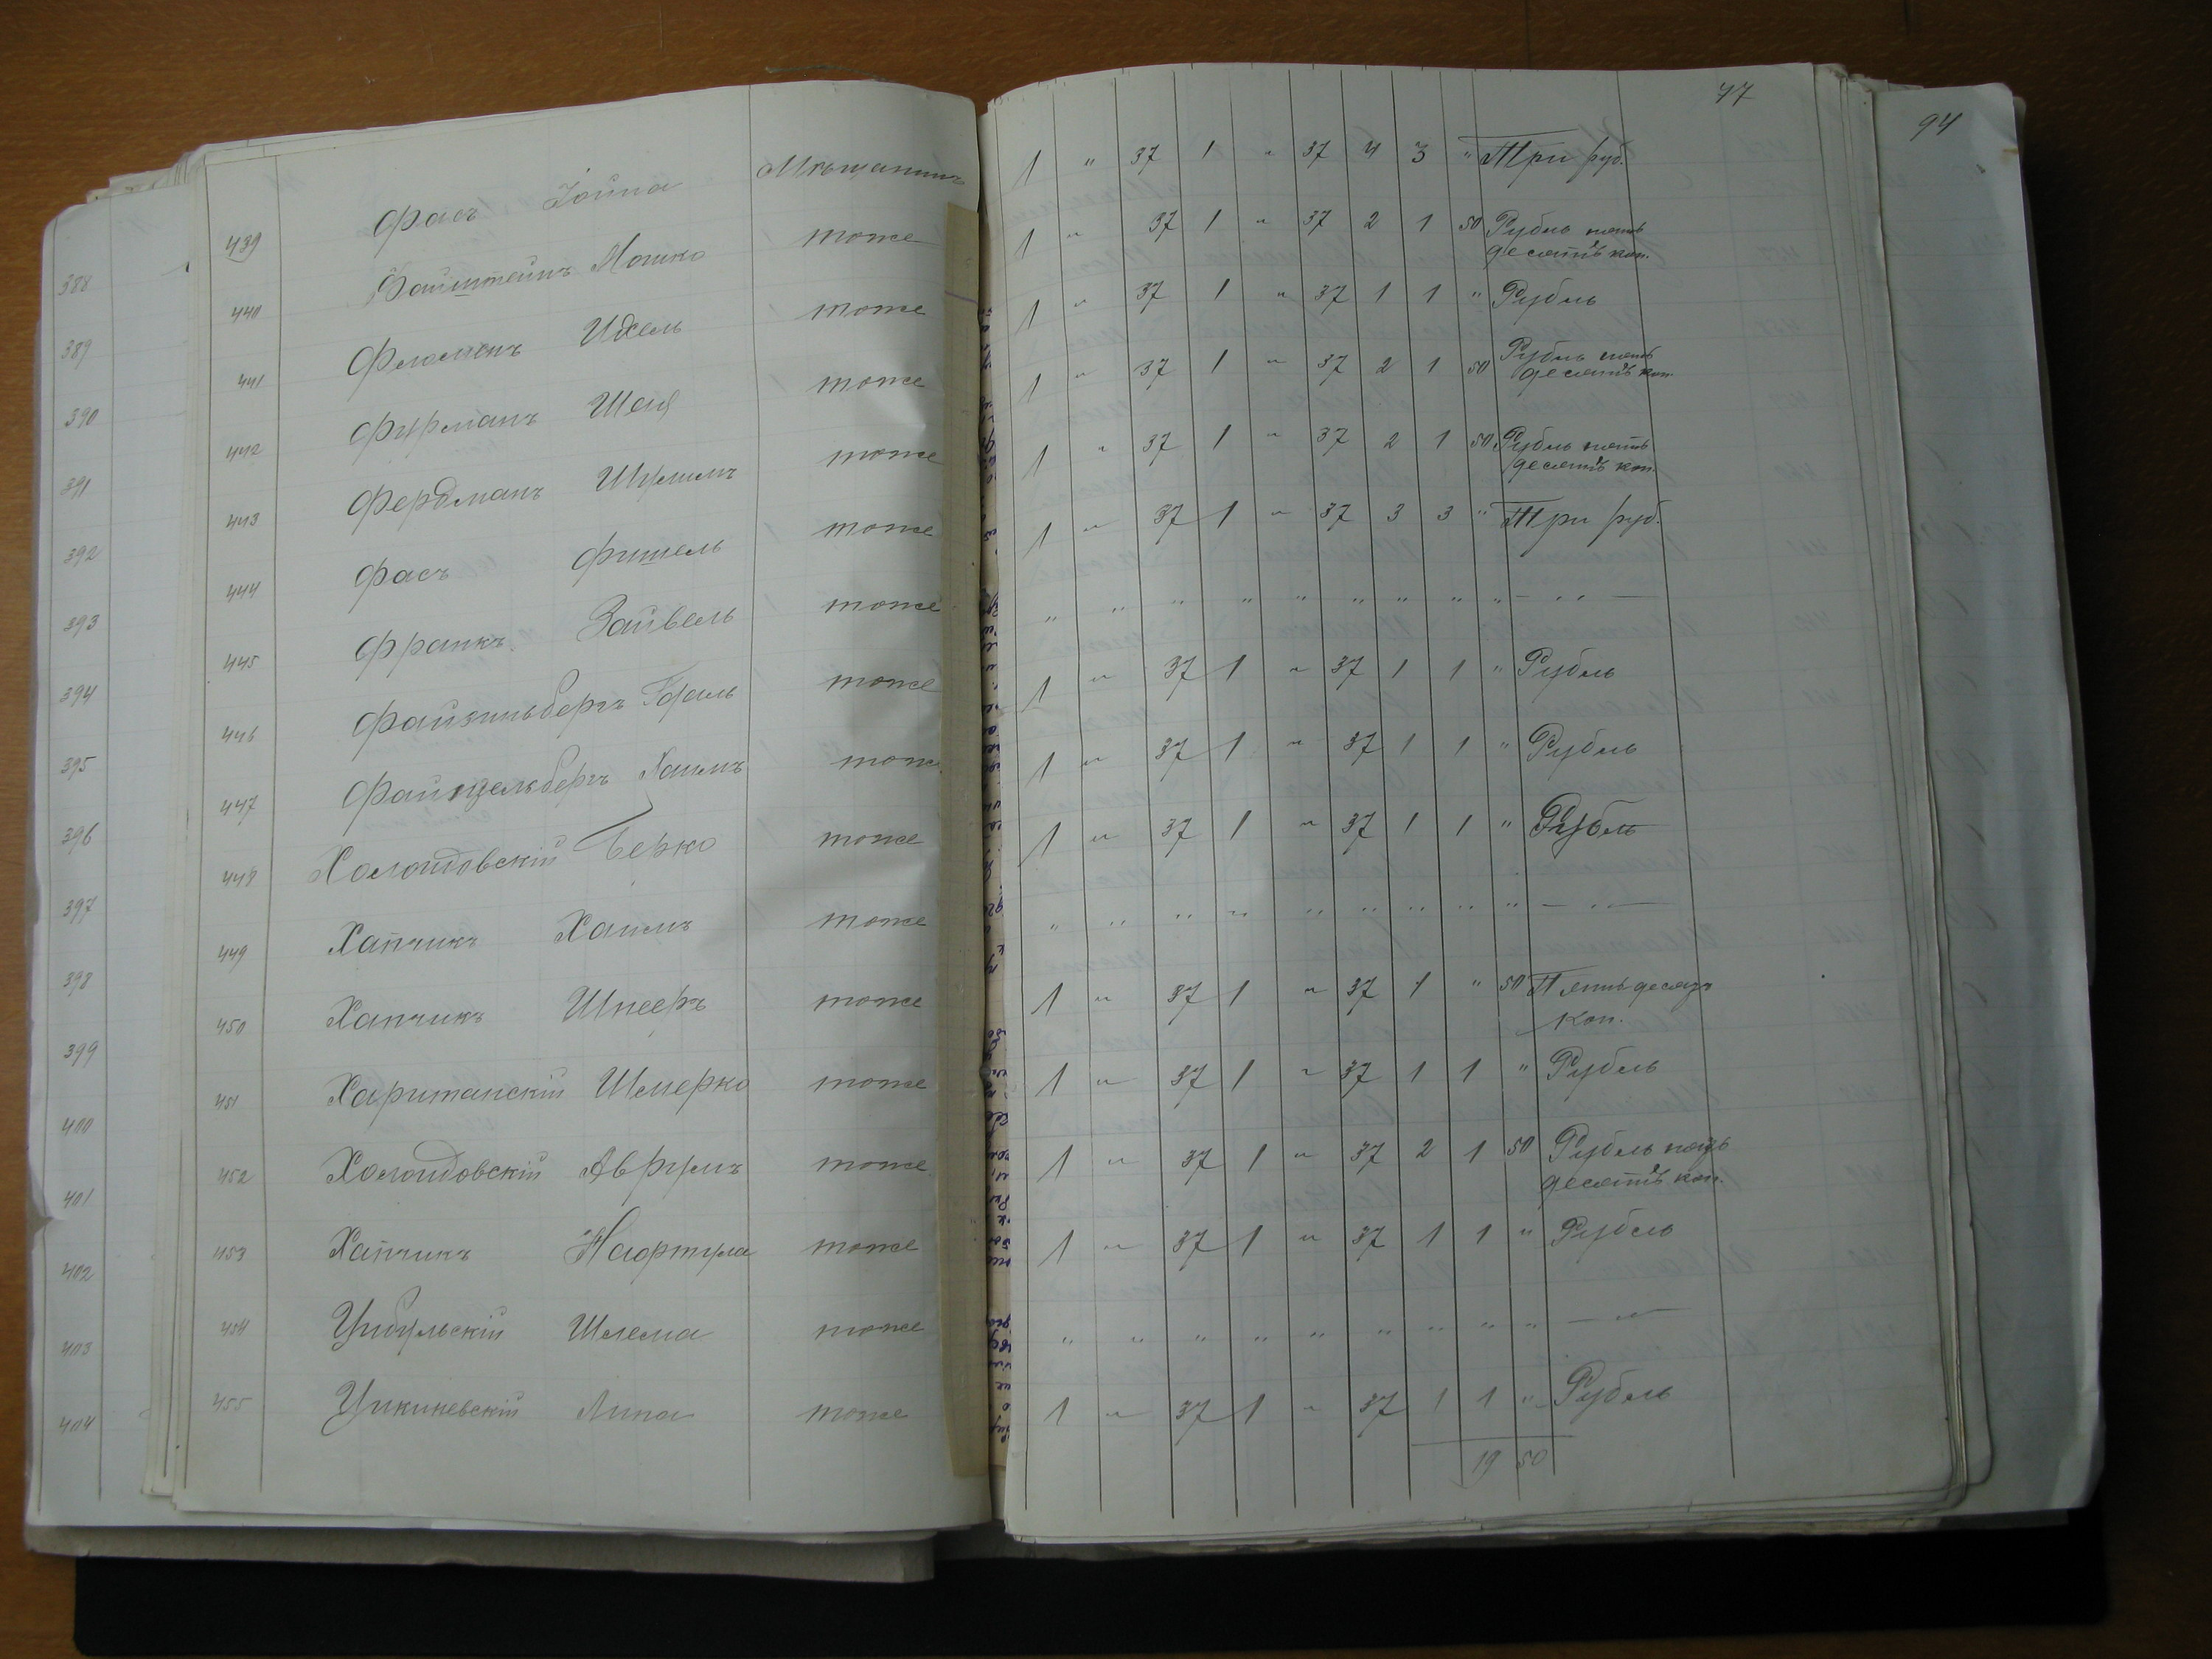 77
94
439 Фасъ Іойна Мѣщанинъ 1 " 37 1 " 37 4 3 " Три руб.
440 Файштейнъ Мошко тоже 1 " 37 1 " 37 2 1 50 Рубль пять
десятъ коп.
441 Идель тоже 1 " 37 1 " 37 1 1 " Рубль
442 Фурманъ Шая тоже 1 " 37 1 " 37 2 1 50 Рубль пять
десятъ коп.
443 Фердманъ Шулимъ тоже 1 " 37 1 " 37 2 1 50 Рубль пять
десятъ коп.
444 Фасъ Фишель тоже 1 " 37 1 " 37 3 3 " Три руб.
445 Франкъ Зайвель тоже " " " " " " " " " — " —
446 Файзинбергъ тоже 1 " 37 1 " 37 1 1 " Рубль
447 Хаимъ тоже 1 " 37 1 " 37 1 1 " Рубль
448 Холоидовскій Берко тоже 1 " 37 1 " 37 1 1 " Рубль
449 Хапчикъ Хаимъ тоже " " " " " " " " " — " —
450 Хапчикъ Шнееръ тоже 1 " 37 1 " 37 1 " 50 Пятьдесят
коп.
451 Хаританскій Шмерко тоже 1 " 37 1 " 37 1 1 " Рубль
452 Холоидовскій Аврумъ тоже 1 " 37 1 " 37 2 1 50 Рубль пять
десятъ коп.
453 Хапчикъ Нафтула тоже 1 " 37 1 " 37 1 1 " Рубль
454 Цибульскій Шлема тоже " " " " " " " " " — " —
455 Липа тоже 1 " 37 1 " 37 1 1 " Рубль
19 50
388
389
390
391
392
393
394
395
396
397
398
399
400
401
402
403
404